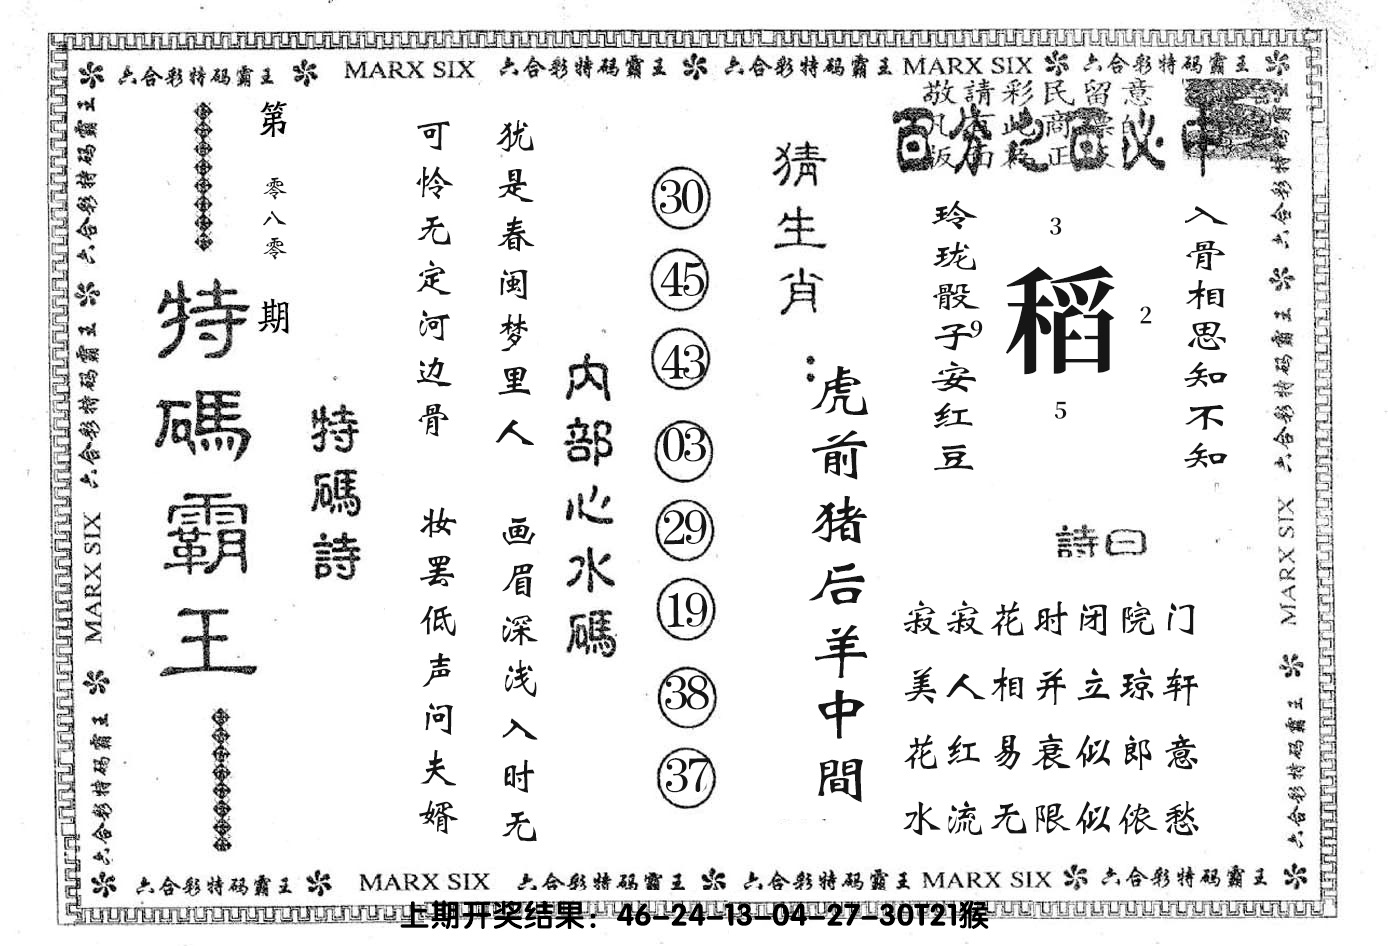 六合彩特码霸王 MARX SIX 六合彩特码霸王 六合彩特码霸王 MARX SIX 六合彩特码霸王
敬請彩民留意
百分之百必中
第零八零期
特碼霸王
特碼詩
可怜无定河边骨
犹是春闺梦里人
妆罢低声问夫婿
画眉深浅入时无
内部心水碼
30
45
43
03
29
19
38
37
猜生肖:
虎前猪后羊中間
玲珑骰子安红豆
入骨相思知不知
3
9
稻
2
5
詩曰
寂寂花时闭院门
美人相并立琼轩
花红易衰似郎意
水流无限似侬愁
六合彩特码霸王 六合彩特码霸王 MARX SIX 六合彩特码霸王
六合彩特码霸王 六合彩特码霸王 MARX SIX 六合彩特码霸王
六合彩特码霸王 MARX SIX 六合彩特码霸王 六合彩特码霸王 MARX SIX 六合彩特码霸王
上期开奖结果：46-24-13-04-27-30T21猴